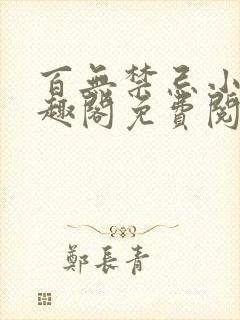 百無禁忌小
趣閣免費閱
鄭長青